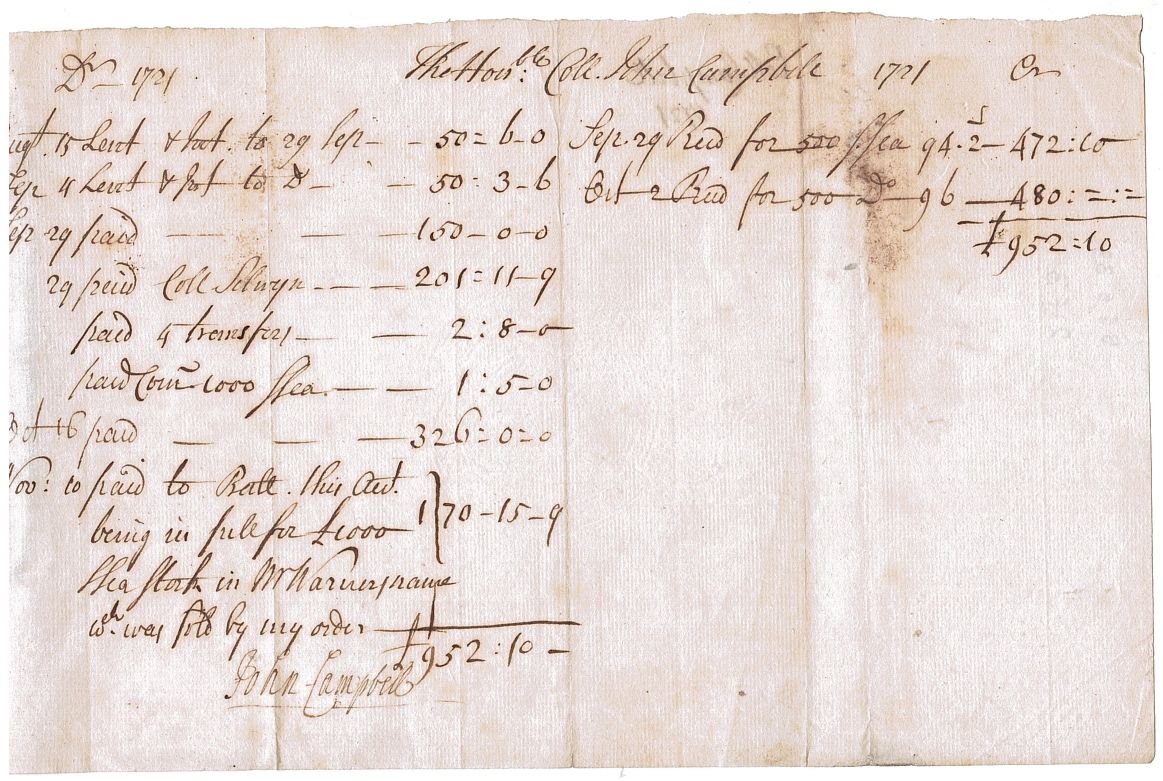 Dr 1721 The Honble: Coll. John Campbell 1721 Cr
Augt. 15 Lent & Int. to 29 Sep - - 50 = 6 - 0
Sep 4 Lent & Int to Do - - 50 : 3 - 6
Sep 29 paid - - - 150 - 0 - 0
29 paid Coll Selwyn - - - 201 = 11 - 9
paid 4 transfers - - 2 : 8 - 0
paid Com 1000 SSea. - - 1 : 5 - 0
Oct 16 paid - - - 326 = 0 = 0
Nov: 10 paid to Ball. this Acct.
being in full for £1000 170 - 15 - 9
SSea Stock in Mr Warners name
wch. was sold by my order
£952 : 10 -
John Campbell
Sep. 29 Recd for 500 SSea 94 · 1/2 - 472 : 10
Oct 2 Recd for 500 Do - 96 - 480 : = : =
£952 : 10